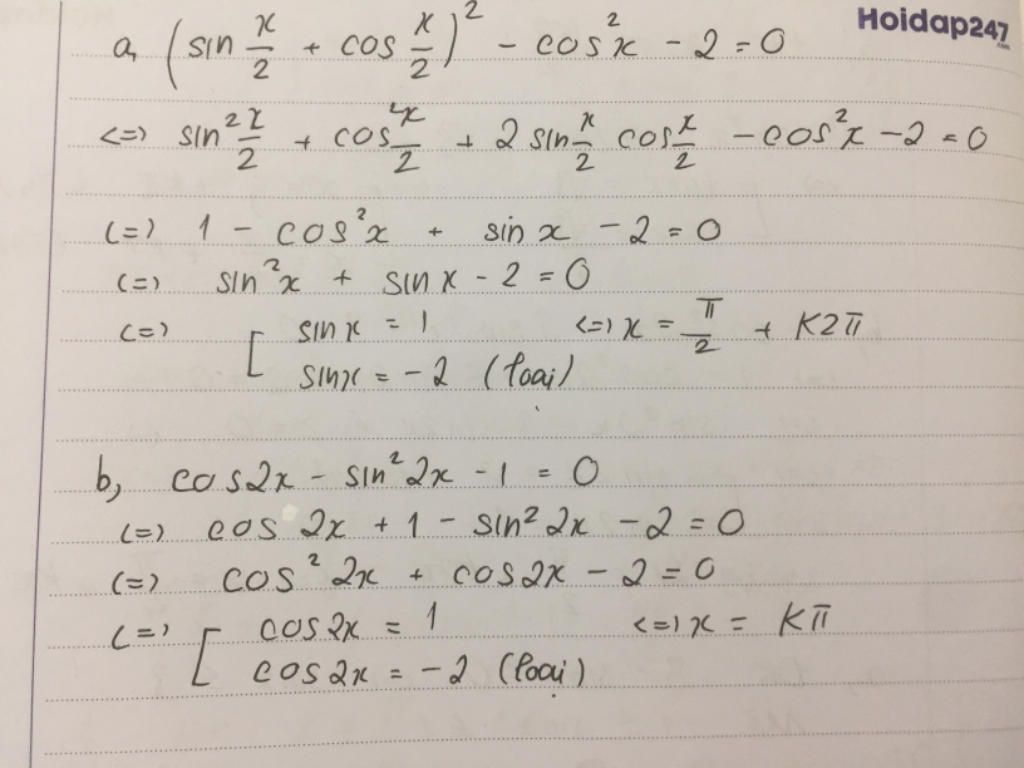 Hoidap247.com
a, (sin x/2 + cos x/2)² - cos²x - 2 = 0
<=> sin² x/2 + cos² x/2 + 2 sin x/2 cos x/2 - cos²x - 2 = 0
(=) 1 - cos²x + sin x - 2 = 0
(=) sin²x + sin x - 2 = 0
(=) [ sin x = 1 <=> x = π/2 + K2π
sin x = -2 (loại)
b, cos2x - sin²2x - 1 = 0
(=) cos 2x + 1 - sin² 2x - 2 = 0
(=) cos² 2x + cos2x - 2 = 0
(=) [ cos 2x = 1 <=> x = Kπ
cos 2x = -2 (loại)